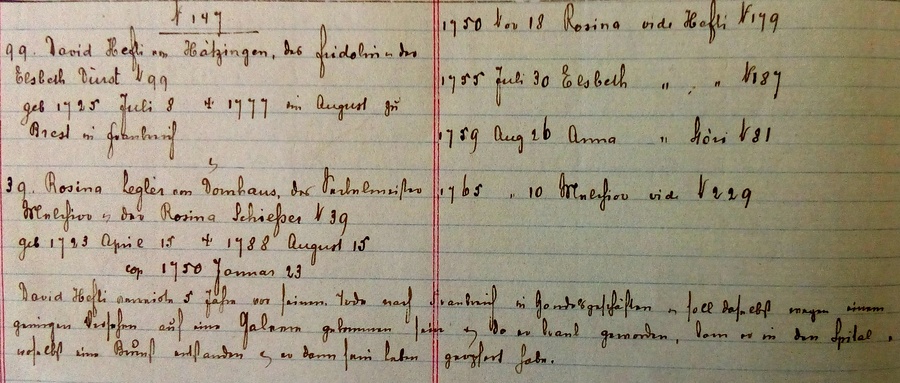 N 147
99. David Hefli von Hätzingen, des Fridolin u der
Elsbeth Dürst N 99
geb 1725 Juli 8 ✝ 1777 im August zu
Brest in Frankreich
&
39. Rosina Legler von Dornhaus, des
Melchior & der Rosina Schießer N 39
geb 1723 April 15 ✝ 1788 August 15
cop 1750 Januar 23
1750 Nov 18 Rosina vide Hefti N 179
1755 Juli 30 Elsbeth " " " N 187
1759 Aug 26 Anna " Störi N 81
1765 " 10 Melchior vide N 229
David Hefti verreiste 5 Jahre vor seinem Tode nach Frankreich in Handelsgeschäften & soll daselbst wegen einem
geringen Versehen auf eine Galeere gekommen sein & da er krank geworden, kam er in den Spital,
woselbst eine Brunst entstanden & er dann sein Leben geopfert habe.